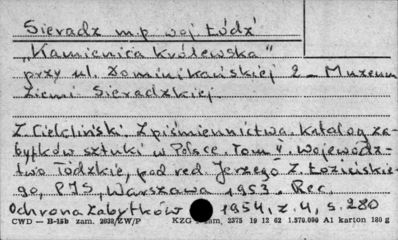 Sieradz m.p woj Łódź
„Kamienica Królewska"
przy ul. Dominikańskiej 2 – Muzeum
Ziemi Sieradzkiej
Z. Ciekliński. Z piśmiennictwa. Katalog za-
bytków sztuki w Polsce, Tom II, województ-
two łódzkie, pod red. Jerzego Z. Łozińskie-
go, PIS, Warszawa 1953. Rec.
Ochrona Zabytków 1954, z. 4, s. 280
CWD — B-15b zam. 2032/ZW/P KZG zam. 2375 19 12 62 1.570.000 A1 karton 180 g